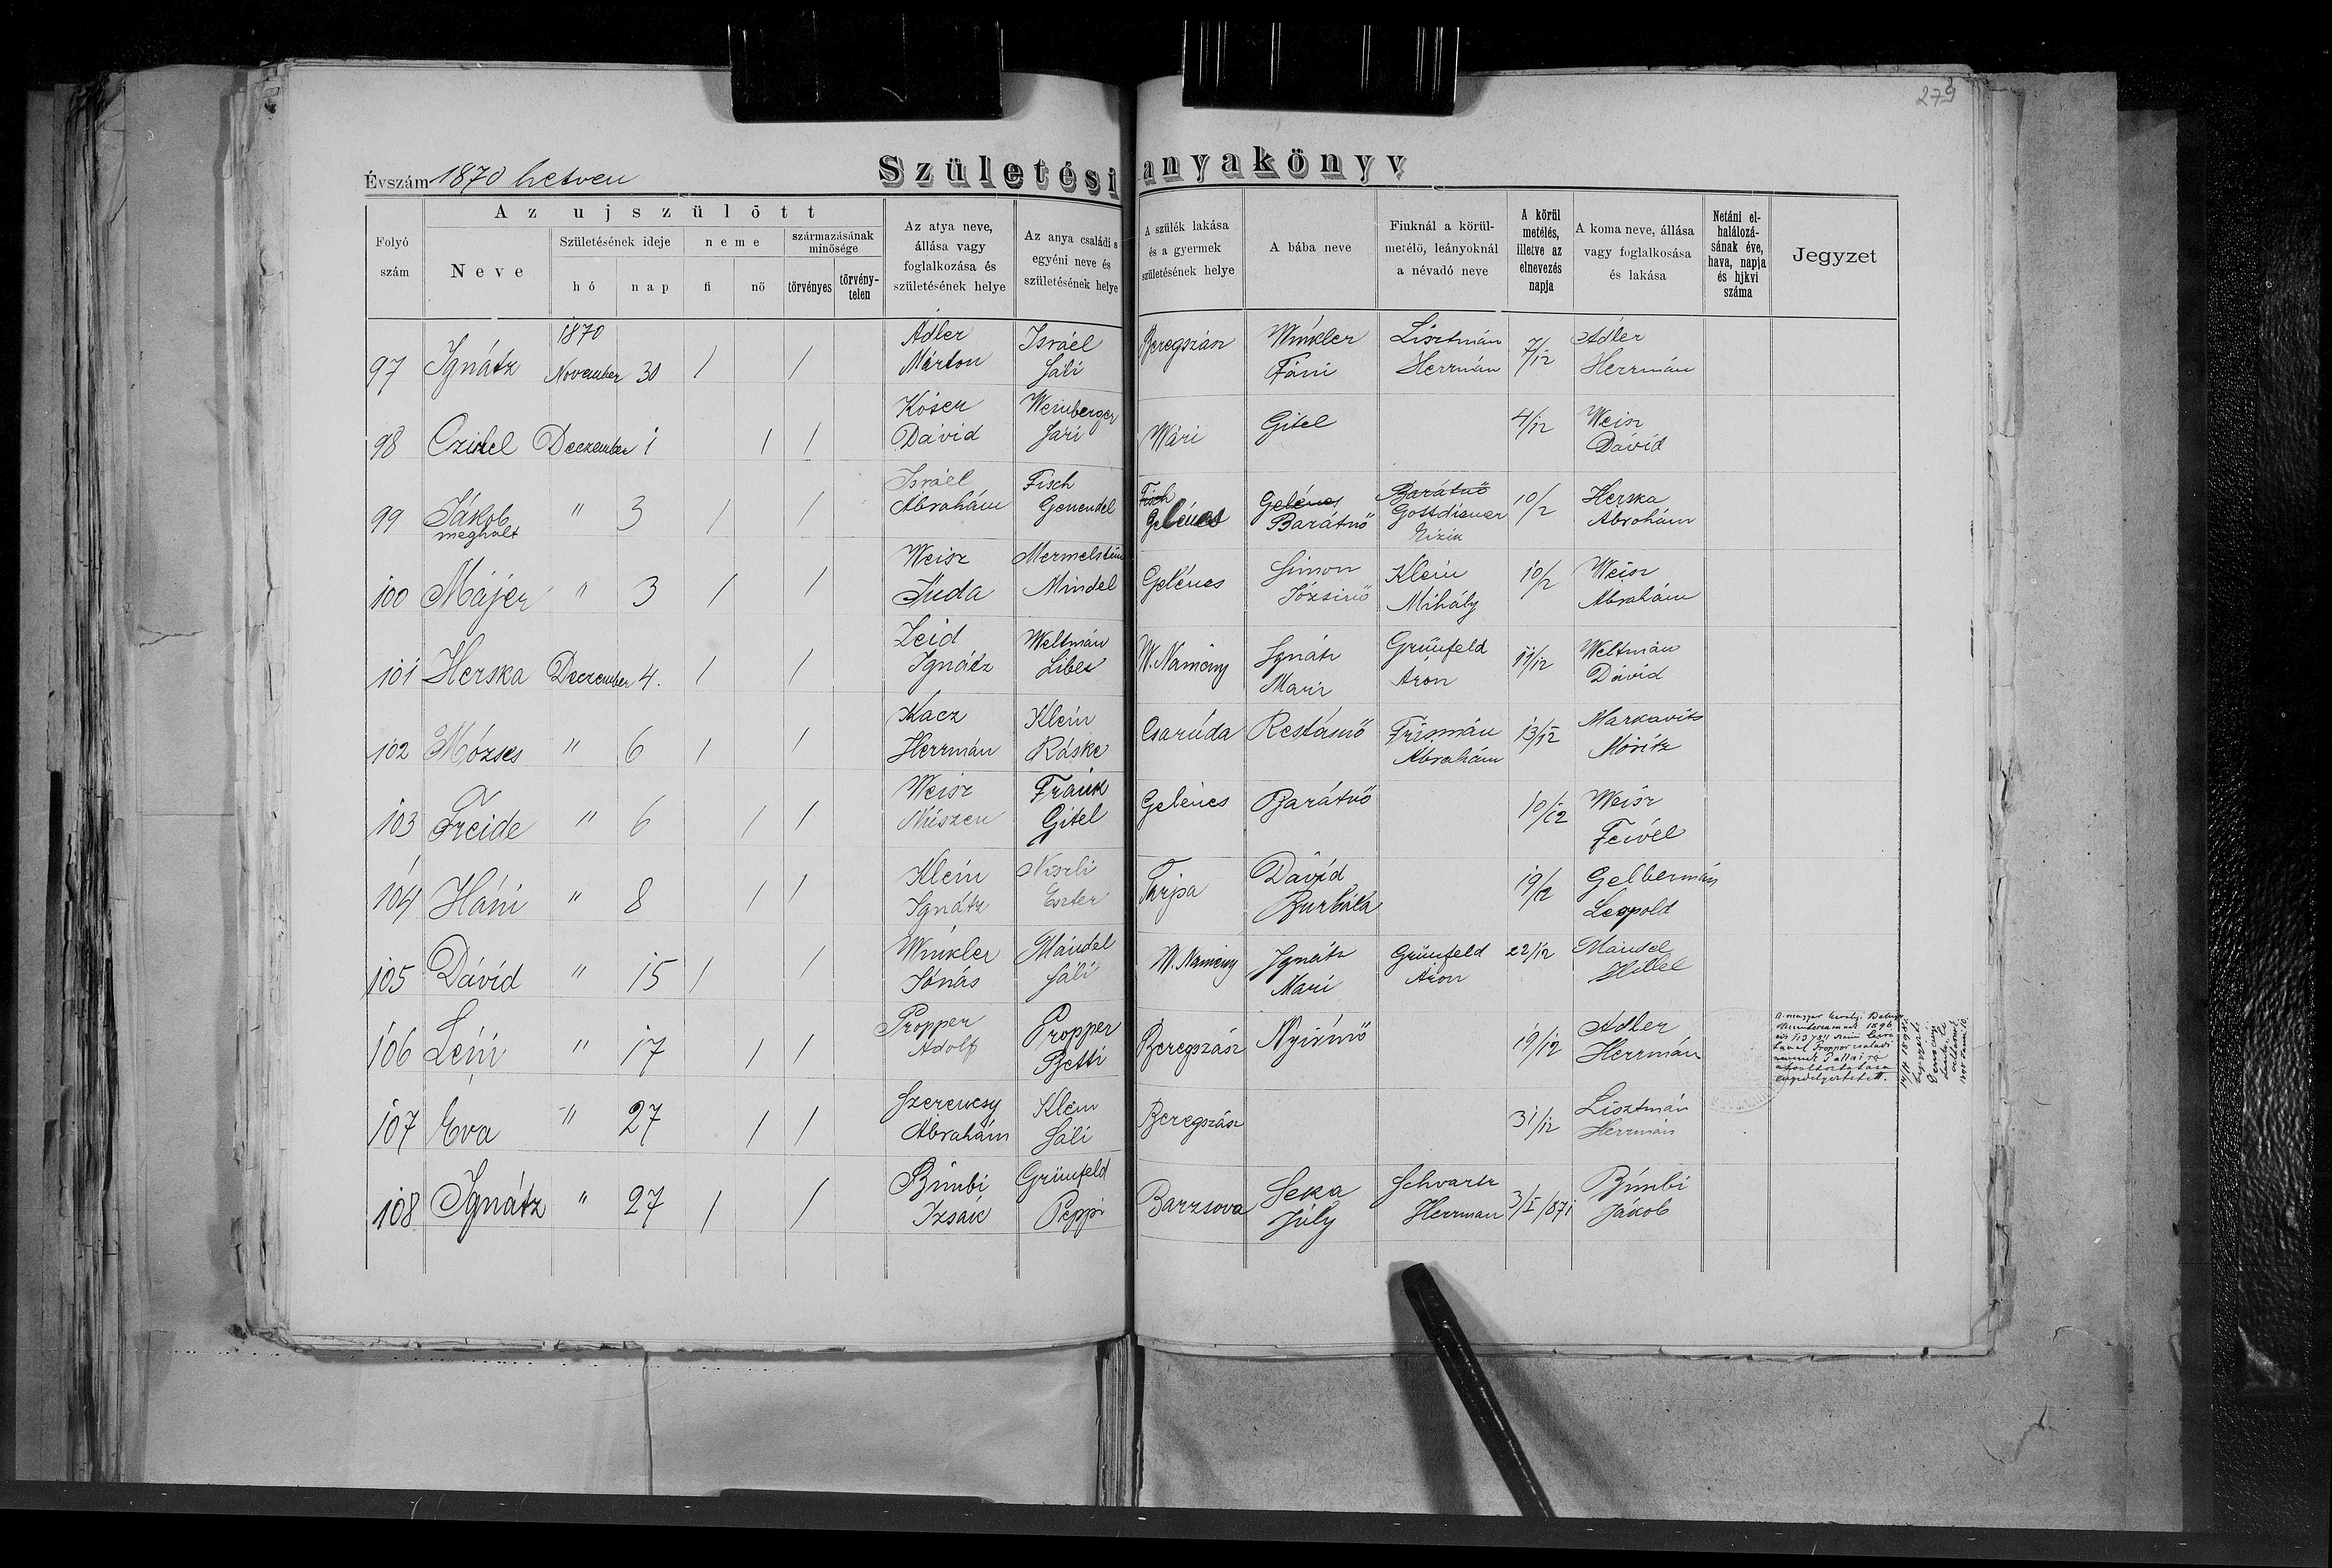 279
Évszám 1870 hetven
Születési anyakönyv
Folyó szám
Az ujszülött
Neve
Születésének ideje
hó
nap
neme
fi
nő
származásának minősége
törvényes
törvény-telen
Az atya neve, állása vagy foglalkozása és születésének helye
Az anya családi s egyéni neve és születésének helye
A szülék lakása és a gyermek születésének helye
A bába neve
Fiuknál a körül-metélő, leányoknál a névadó neve
A körül metélés, illetve az elnevezés napja
A koma neve, állása vagy foglalkosása és lakása
Netáni el-halálozá-sának éve, hava, napja és hjkvi száma
Jegyzet
97 Ignátz 1870 November 30 / / Adler Márton Israél Sáli Beregszász Winkler Fáni Lisztmán Herrmán 7/12 Adler Herrmán
98 Czirel Deczember 1 / / Kóser Dávid Weinberger Sári Wári Gitel 4/12 Weisz Dávid
99 Jákob meghalt " 3 / / Israél Abrahám Fisch Genendel Fisch Gelénes Gelénes Barátnő Barátnő Gottdiener 10/2 Herska Abrahám
100 Májer " 3 / / Weisz Juda Mermelstein Mindel Gelénes Simon Józsinő Klein Mihály 10/2 Weisz Abrahám
101 Herska Deczember 4. / / Zeid Ignátz Weltmán Libes W. Namény Ignátz Mari Grünfeld Áron 11/12 Weltmán Dávid
102 Mózses " 6 / / Kacz Herrmán Klein Ráske Csaróda Restásnő Frismán Abrahám 13/12 Markavits Móritz
103 Freide " 6 / / Weisz Nuszen Frank Gitel Gelénes Barátnő 10/12 Weisz Feivel
104 Háni " 8 / / Klein Ignátz Niszli Eszter Tarpa Dávid Burbála 19/2 Gelbermán Leopold
105 Dávid " 15 / / Winkler Jónás Mandel Sáli W. Namény Ignátz Mari Grünfeld Aron 22/12 Mandel Hillel
106 Léni " 17 / / Propper Adolf Propper Betti Beregszász Nyirinő 19/12 Adler Herrmán
A magyar királyi Belügy
Ministeriumnak 1896
Propper családi
nevének Pallai ra
átváltoztatása
engedélyeztetett.
107 Eva " 27 / / Szerencsy Abrahám Klein Sáli Beregszász 31/12 Lisztmán Herrmán
108 Ignátz " 27 / / Bimbi Izsák Grünfeld Peppi Barzsova Seka July Schvartz Herrman 3/I/871 Bimbi Jákob